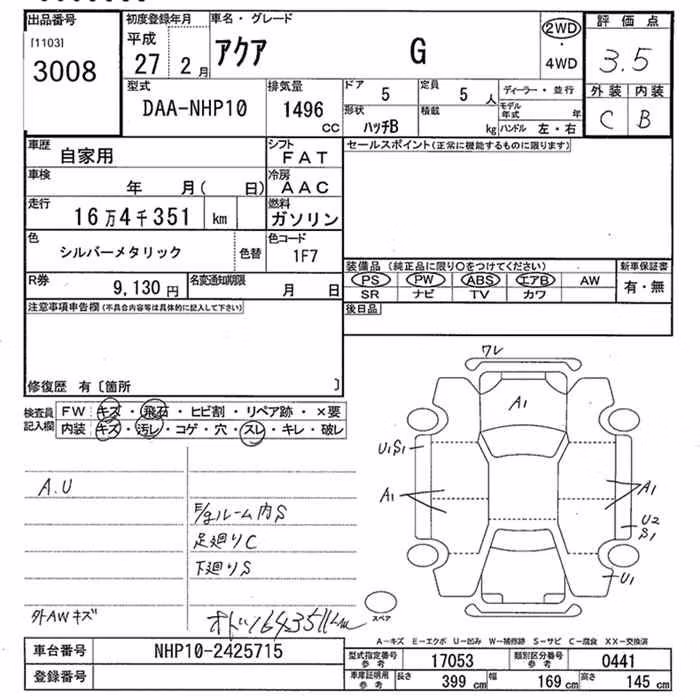 出品番号
[1103]
3008
初度登録年月
平成
27 2月
車名・グレード
アクア G
2WD
・
4WD
評価点
3.5
外装 内装
C B
型式
DAA-NHP10
排気量
1496
CC
ドア
5
定員
5 人
形状
ハッチB
積載
kg
ディーラー・並行
モデル年式 年
ハンドル 左・右
車歴
自家用
シフト
FAT
車検
年 月( 日)
冷房
AAC
走行
16万4千351 km
燃料
ガソリン
色
シルバーメタリック
色替
色コード
1F7
R券
9,130 円
名変通知期限
月 日
セールスポイント(正常に機能するものに限ります)
装備品 (純正品に限り○をつけてください)
PS PW ABS エアB AW
SR ナビ TV カワ
新車保証書
有・無
後日品
注意事項申告欄(不具合内容等は具体的に記入して下さい)
修復歴 有〔箇所 〕
検査員
記入欄
FW キズ・飛石・ヒビ割・リペア跡・×要
内装 キズ・汚レ・コゲ・穴・スレ・キレ・破レ
A.U
F/gルーム内S
足廻りC
下廻りS
外AWキズ
オドメ164351km
ワレ
A1
U1S1
A1
A1
U2
S1
U1
スペア
A-キズ E-エクボ U-凹み W-補修跡 S-サビ C-腐食 XX-交換済
車台番号
NHP10-2425715
登録番号
型式指定番号
参考
17053
類別区分番号
参考
0441
車庫証明用
参考
長さ
399 cm
幅
169 cm
高さ
145 cm